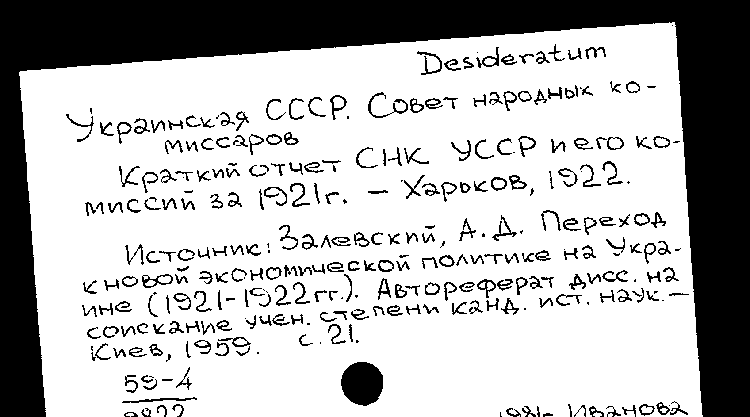 Desideratum
Украинская СССР. Совет народных ко-
миссаров
Краткий отчет СНК УССР и его ко-
миссий за 1921г. — Харьков, 1922.
Источник: Залевский, А.Д. Переход
к новой экономической политике на Укра-
ине (1921-1922 гг.). Автореферат дисс. на
соискание учен. степени канд. ист. наук. —
Киев, 1959. с. 21.
59-4
Иванова